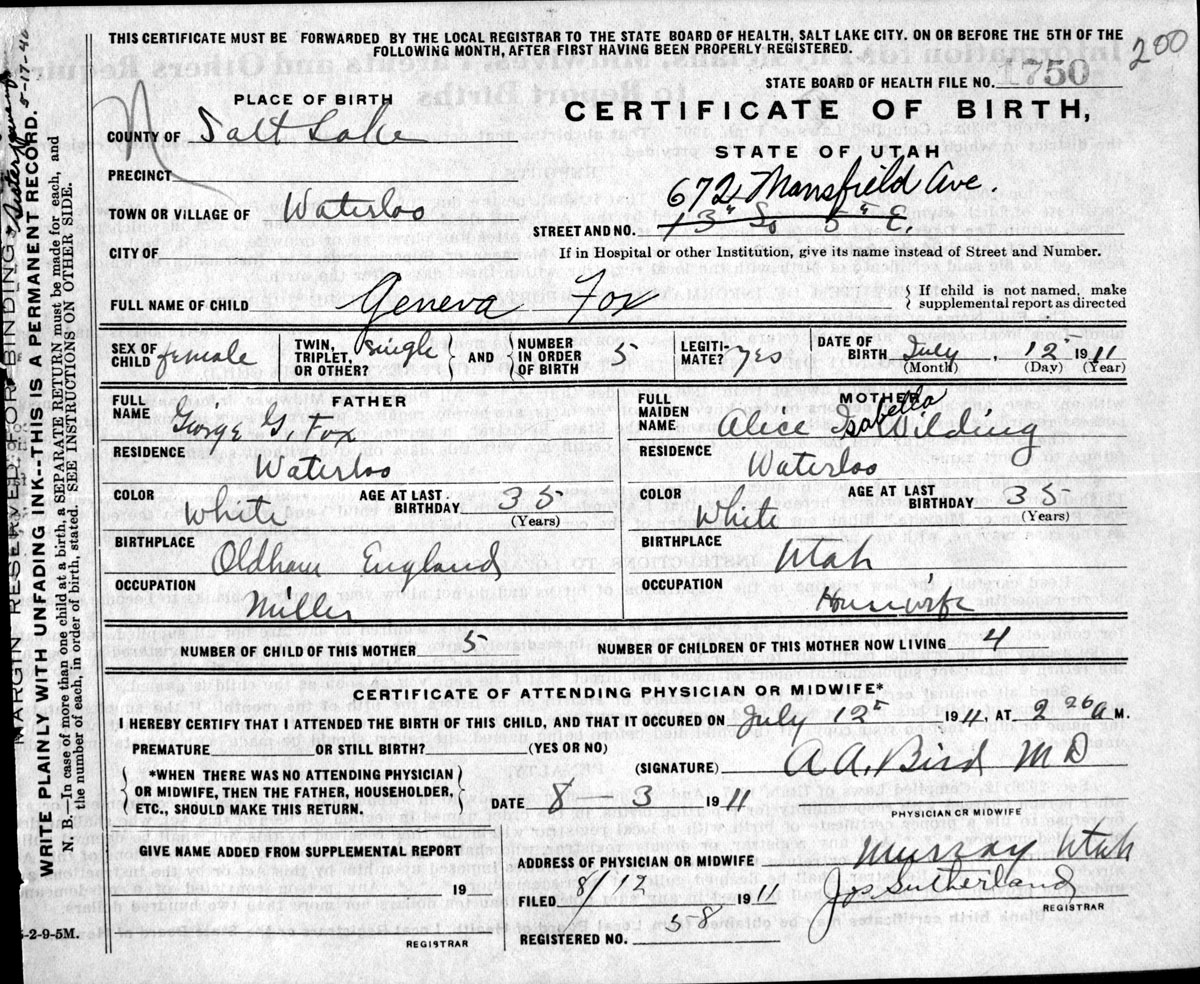 THIS CERTIFICATE MUST BE FORWARDED BY THE LOCAL REGISTRAR TO THE STATE BOARD OF HEALTH, SALT LAKE CITY. ON OR BEFORE THE 5TH OF THE
FOLLOWING MONTH, AFTER FIRST HAVING BEEN PROPERLY REGISTERED.
200
STATE BOARD OF HEALTH FILE NO. 1750
PLACE OF BIRTH
CERTIFICATE OF BIRTH,
COUNTY OF Salt Lake
STATE OF UTAH
PRECINCT
672 Mansfield Ave.
TOWN OR VILLAGE OF Waterloo
STREET AND NO. 13" So 5" E.
CITY OF
If in Hospital or other Institution, give its name instead of Street and Number.
FULL NAME OF CHILD Geneva Fox
If child is not named, make
supplemental report as directed
SEX OF CHILD female
TWIN, TRIPLET, OR OTHER? single
AND NUMBER IN ORDER OF BIRTH 5
LEGITIMATE? yes
DATE OF BIRTH July, 12 1911
(Month) (Day) (Year)
FATHER
FULL NAME George G. Fox
RESIDENCE Waterloo
COLOR White
AGE AT LAST BIRTHDAY 35
(Years)
BIRTHPLACE Oldham England
OCCUPATION Miller
MOTHER
FULL MAIDEN NAME Alice Isabella Wilding
RESIDENCE Waterloo
COLOR White
AGE AT LAST BIRTHDAY 35
(Years)
BIRTHPLACE Utah
OCCUPATION Housewife
NUMBER OF CHILD OF THIS MOTHER 5
NUMBER OF CHILDREN OF THIS MOTHER NOW LIVING 4
CERTIFICATE OF ATTENDING PHYSICIAN OR MIDWIFE*
I HEREBY CERTIFY THAT I ATTENDED THE BIRTH OF THIS CHILD, AND THAT IT OCCURED ON July 12 1911, AT 2 26 a M.
PREMATURE OR STILL BIRTH? (YES OR NO)
(SIGNATURE) A A. Bird M D
*WHEN THERE WAS NO ATTENDING PHYSICIAN
OR MIDWIFE, THEN THE FATHER, HOUSEHOLDER,
ETC., SHOULD MAKE THIS RETURN.
DATE 8 3 1911
PHYSICIAN OR MIDWIFE
GIVE NAME ADDED FROM SUPPLEMENTAL REPORT
19
REGISTRAR
ADDRESS OF PHYSICIAN OR MIDWIFE Murray Utah
FILED 8/12 1911 Jos Sutherland
REGISTRAR
REGISTERED NO. 58
MARGIN RESERVED FOR BINDING
5-17-40
WRITE PLAINLY WITH UNFADING INK--THIS IS A PERMANENT RECORD.
N. B.—In case of more than one child at a birth, a SEPARATE RETURN must be made for each, and
the number of each, in order of birth, stated. SEE INSTRUCTIONS ON OTHER SIDE.
-2-9-5M.